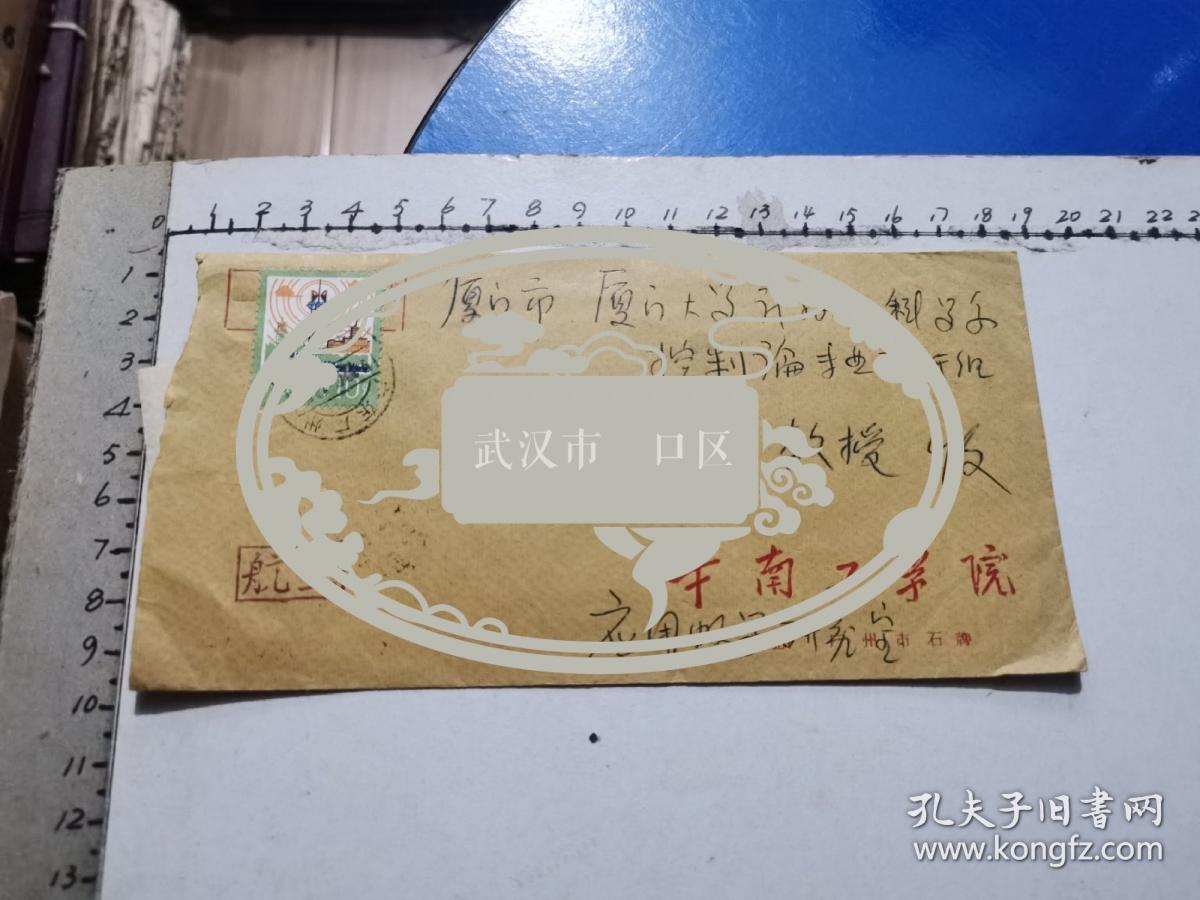 0 1 2 3 4 5 6 7 8 9 10 11 12 13 14 15 16 17 18 19 20 21 22
1
2
3
4
5
6
7
8
9
10
11
12
13
厦门市 厦门大学 科学系
控制论
教授 收
武汉市 口区
10
航空
南工学院
应用数学 室
州市石牌
孔夫子旧书网
www.kongfz.com